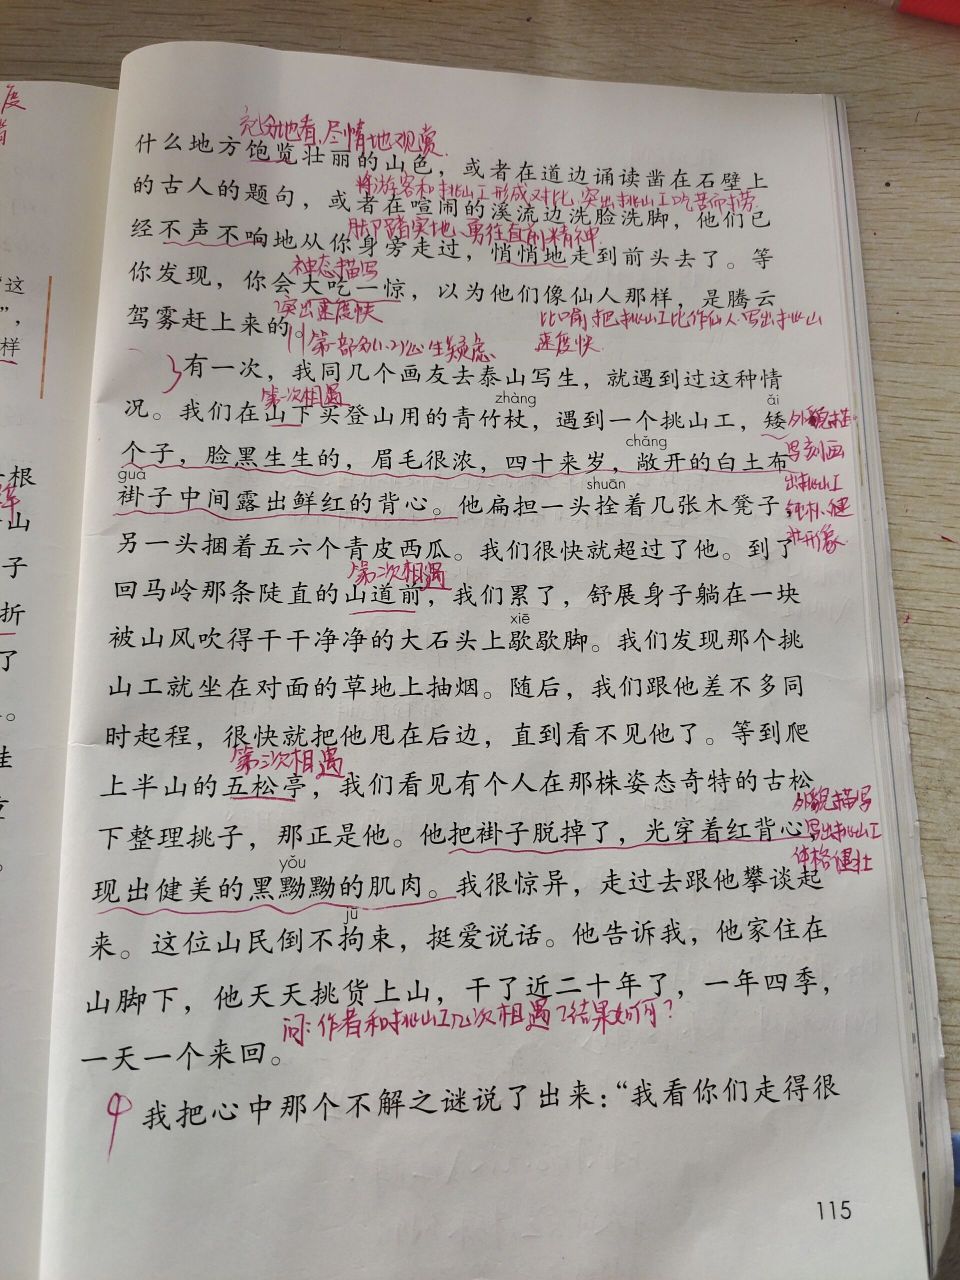 度
情
充分地看，尽情地观赏
什么地方饱览壮丽的山色，或者在道边诵读凿在石壁上
将游客和挑山工形成对比，突出挑山工吃苦耐劳
的古人的题句，或者在喧闹的溪流边洗脸洗脚，他们已
脚踏实地、勇往直前精神
经不声不响地从你身旁走过，悄悄地走到前头去了。等
神态描写
你发现，你会大吃一惊，以为他们像仙人那样，是腾云
突出速度快
比喻，把挑山工比作仙人，写出挑山
速度快
驾雾赶上来的。
第一部分(1.2)心生疑虑
3
有一次，我同几个画友去泰山写生，就遇到过这种情
第一次相遇
zhàng
ǎi
况。我们在山下买登山用的青竹杖，遇到一个挑山工，矮
外貌描
写刻画
出挑山工
健
壮形象
chǎng
个子，脸黑生生的，眉毛很浓，四十来岁，敞开的白土布
guà
shuān
褂子中间露出鲜红的背心。他扁担一头拴着几张木凳子，
另一头捆着五六个青皮西瓜。我们很快就超过了他。到了
第二次相遇
回马岭那条陡直的山道前，我们累了，舒展身子躺在一块
xiē
被山风吹得干干净净的大石头上歇歇脚。我们发现那个挑
山工就坐在对面的草地上抽烟。随后，我们跟他差不多同
时起程，很快就把他甩在后边，直到看不见他了。等到爬
第三次相遇
上半山的五松亭，我们看见有个人在那株姿态奇特的古松
外貌描写
写出挑山工
体格健壮
下整理挑子，那正是他。他把褂子脱掉了，光穿着红背心，
yǒu
现出健美的黑黝黝的肌肉。我很惊异，走过去跟他攀谈起
jū
来。这位山民倒不拘束，挺爱说话。他告诉我，他家住在
山脚下，他天天挑货上山，干了近二十年了，一年四季，
问：作者和挑山工几次相遇？结果如何？
一天一个来回。
4
我把心中那个不解之谜说了出来：“我看你们走得很
115
“这
”，
样
根
山
子
折
了
。